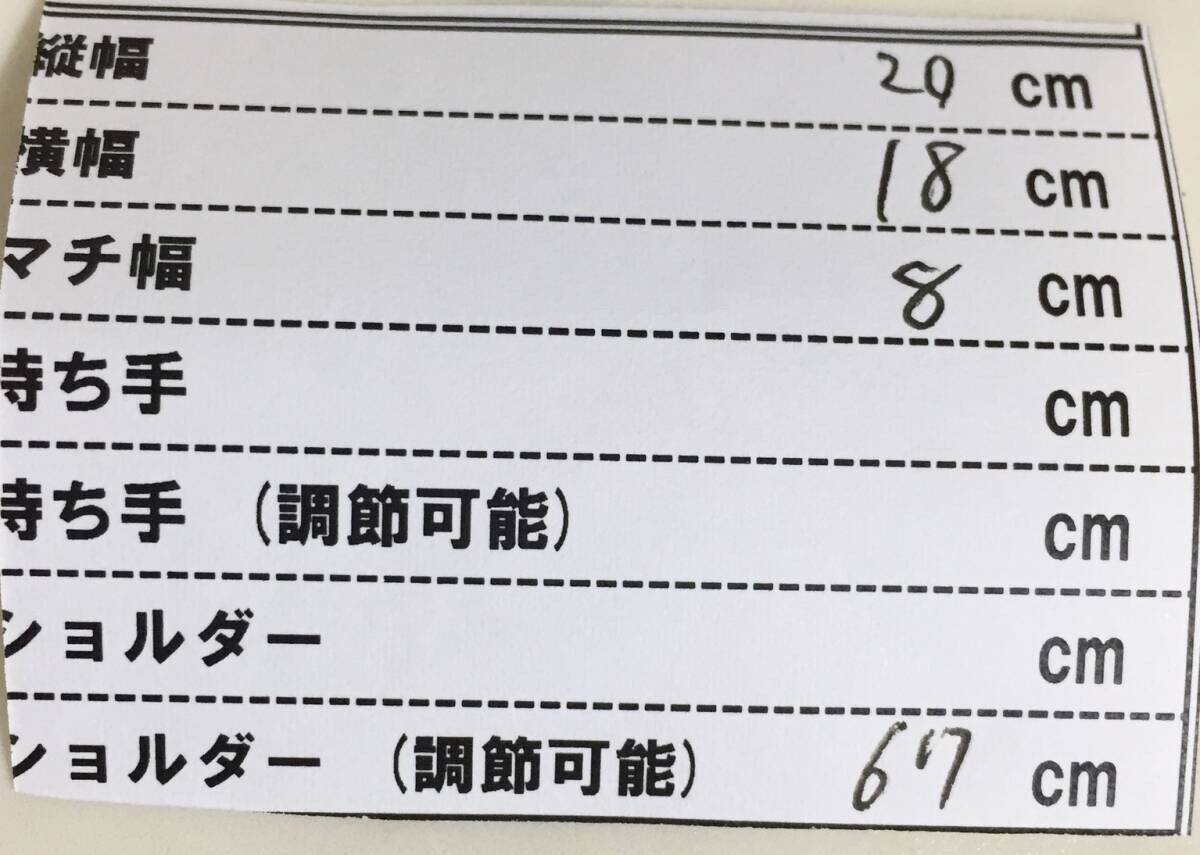 縦幅 20 cm
横幅 18 cm
マチ幅 8 cm
持ち手 cm
持ち手 (調節可能) cm
ショルダー cm
ショルダー (調節可能) 67 cm